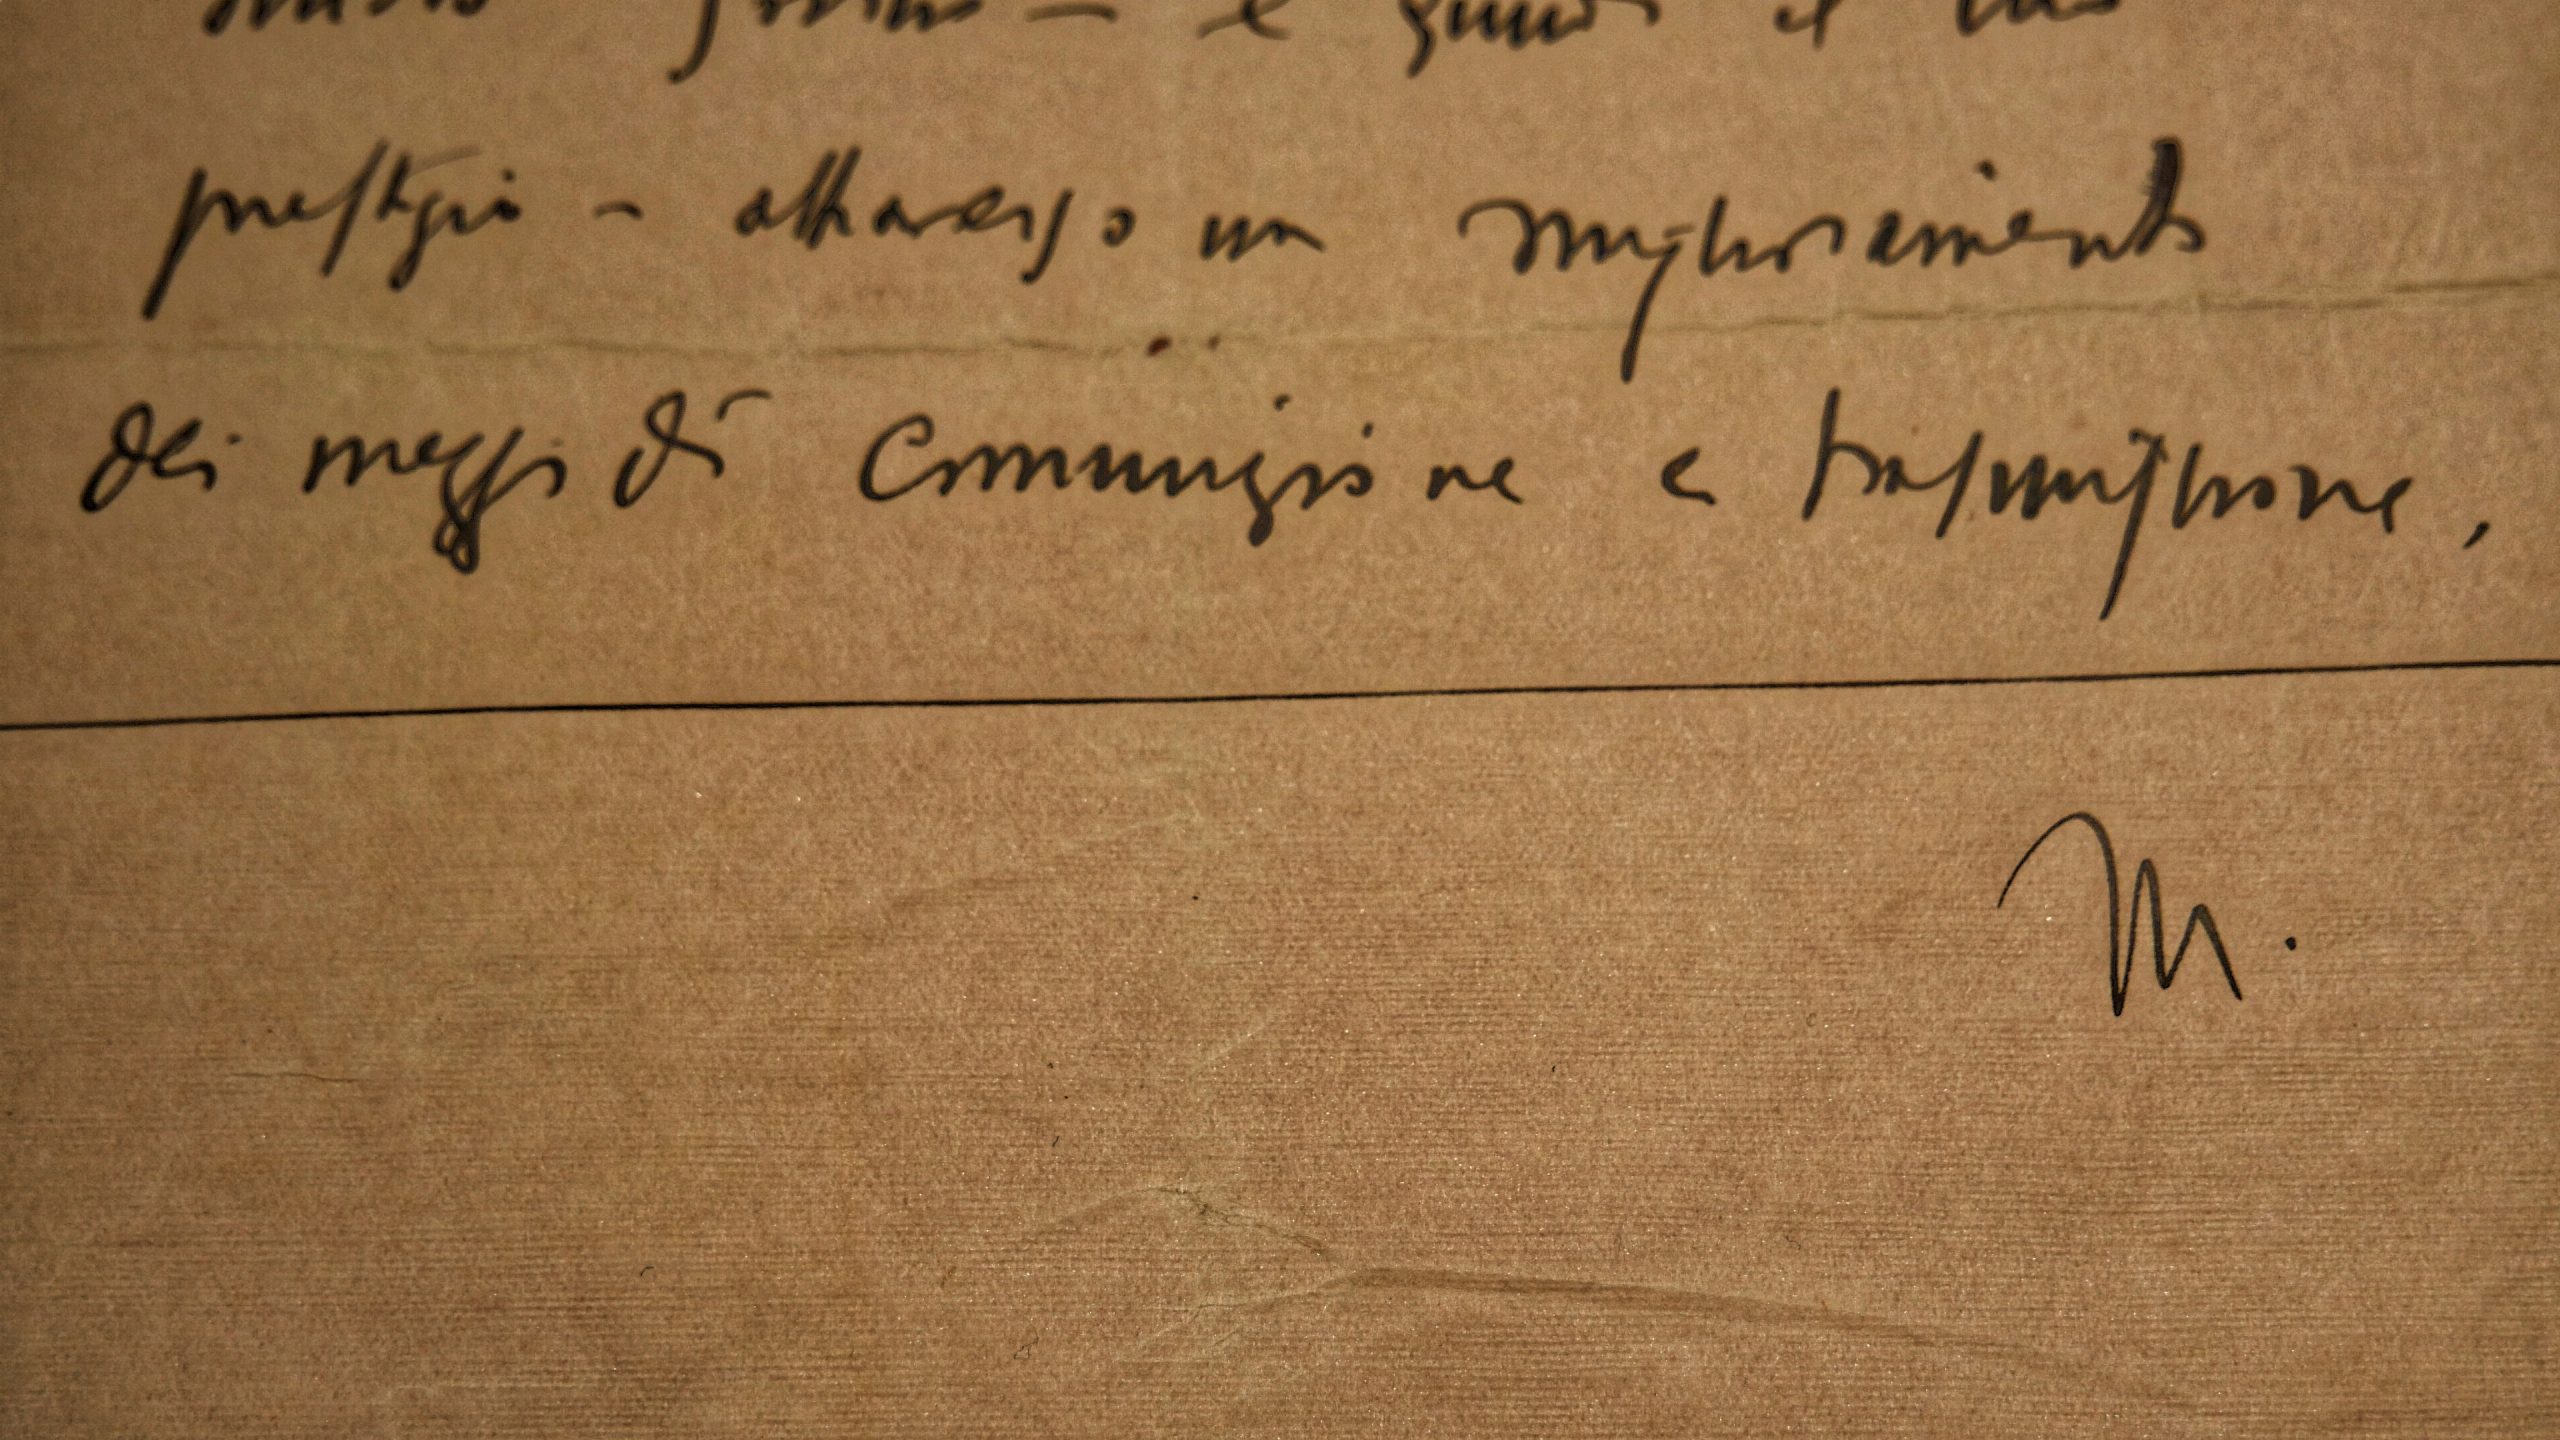 e quindi il suo
prestigio - attraverso un miglioramento
dei mezzi di comunizione e trasmissione,
M.